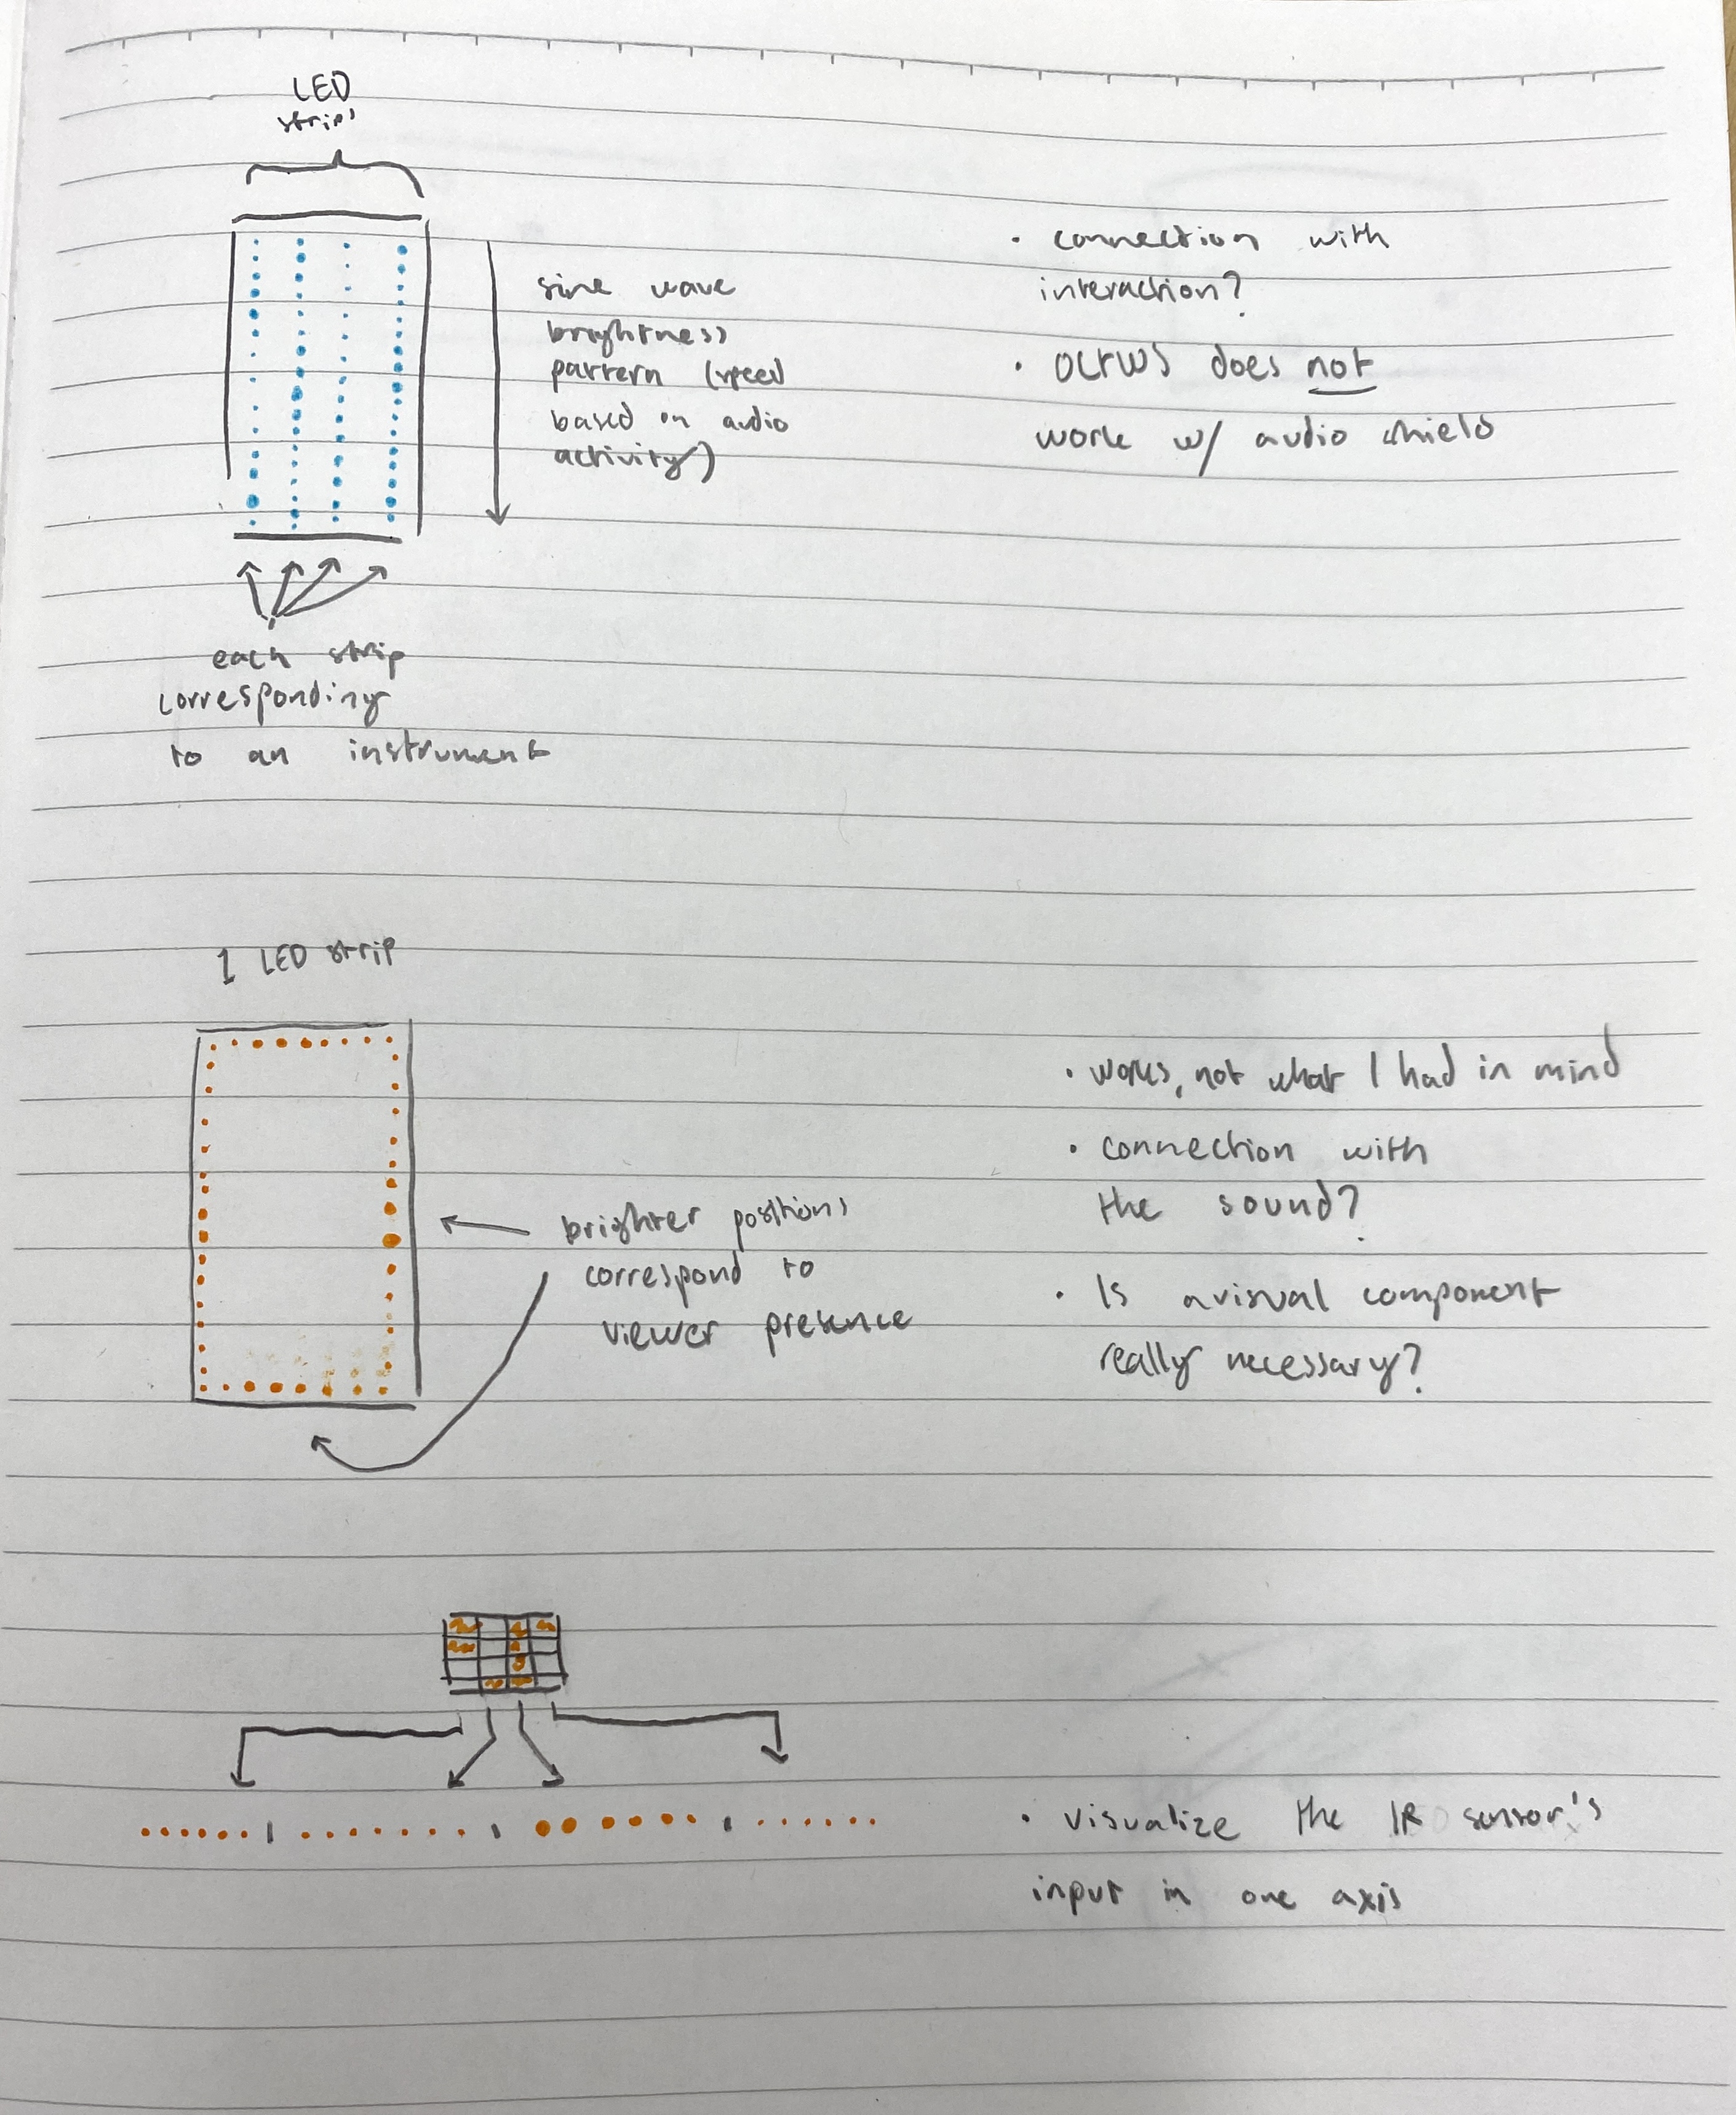 LED
strips
sine wave
brightness
pattern (speed
based on audio
activity)
each strip
corresponding
to an instrument
• connection with
interaction?
• OCTWS does not
work w/ audio shield
1 LED strip
brighter positions
correspond to
viewer presence
• works, not what I had in mind
• connection with
the sound?
• Is a visual component
really necessary?
• visualize the IR sensor's
input in one axis